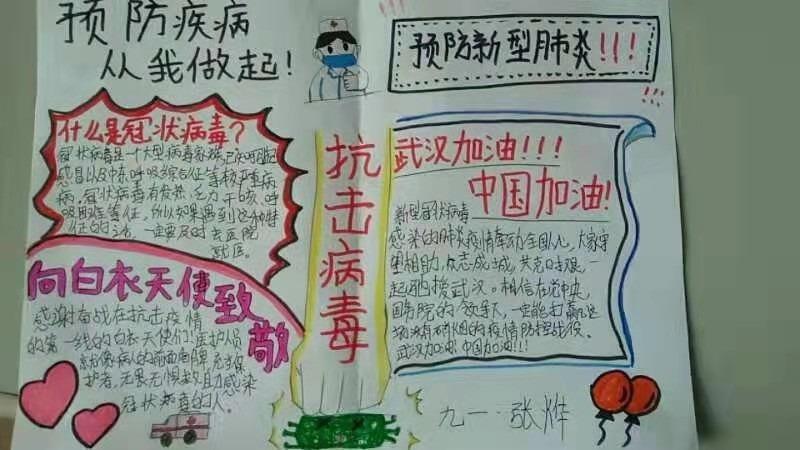 预防疾病
从我做起!
预防新型肺炎!!!
什么是冠状病毒?
冠状病毒是一个大型病毒家族,已知可引起
感冒以及中东呼吸综合征等较严重疾
病,冠状病毒有发热、乏力、干咳、呼
吸困难等症,所以如果遇到这种特
征的话,一定要及时去医院
就医。
向白衣天使致
敬
感谢奋战在抗击疫情
的第一线的白衣天使们!医护人员
病人的前面
护者,无畏无惧救助感染
冠状病毒的人。
抗击病毒
武汉加油!!!
中国加油!
新型冠状病毒
感染的肺炎疫情牵动全国人儿,大家守
望相助,众志成城,共克时艰,一
起驰援武汉。相信在党中央,
国务院的领导下,一定能打赢这
场没有硝烟的疫情防控战役。
武汉加油!中国加油!!!
九一·张烨